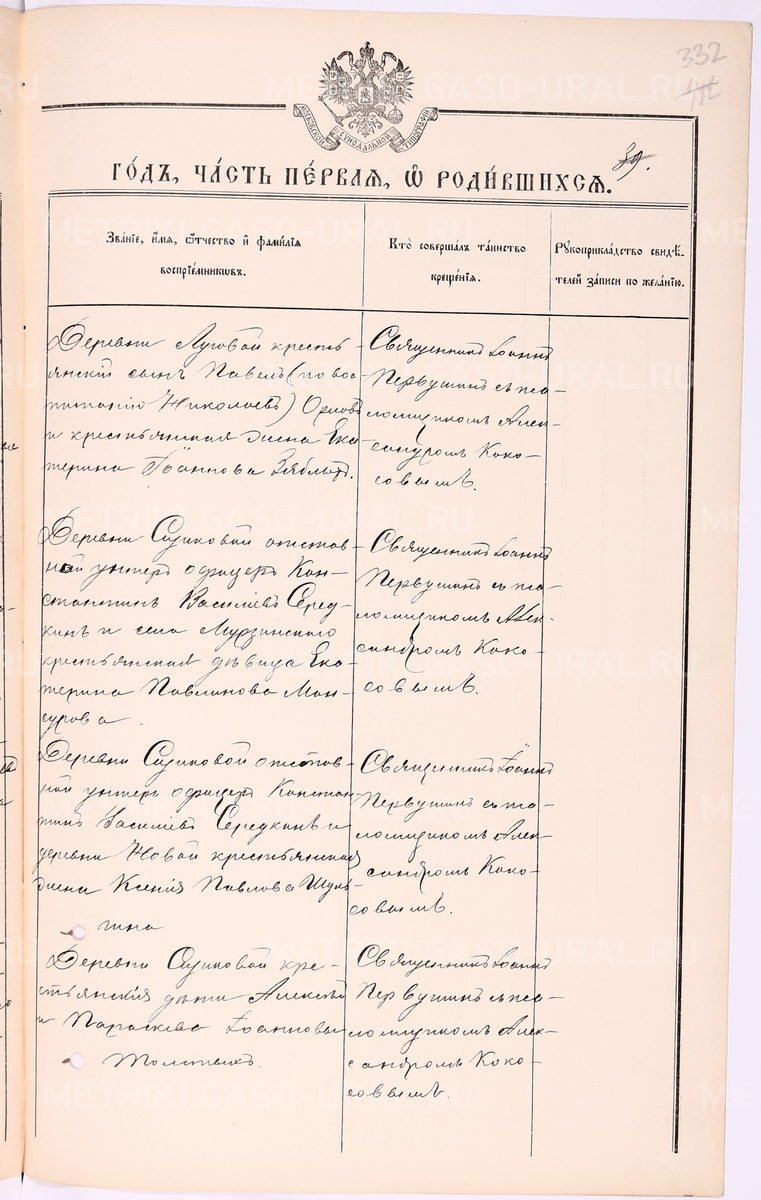 332
МОСКОВСКОЙ СѴНОДАЛЬНОЙ ТИПОГРАФІИ
ГО́ДЪ, ЧА́СТЬ ПЕ́РВАЯ, Ѽ РОДИ́ВШИХСЯ.
39.
Зва́нїе, и҆́мя, ѻ҆́тчество и҆ фамилїѧ
воспрїе́мникѡвъ.
Кто̀ соверша́лъ та́инство
креще́нїѧ.
Рꙋкоприкла́дство свидѣ́-
телей за́писи по жела́нїю.
Деревни Луговой кресть-
янскій сынъ Павелъ (по вос-
питанію Николаевъ) Орловъ
и крестьянская жена Ека-
терина Іоаннова Зяблыхъ.
Священникъ Іоаннъ
Первушинъ съ пса-
ломщикомъ Алек-
сандромъ Коко-
совымъ.
Деревни Сизиковой отстав-
ной унтеръ офицеръ Кон-
стантинъ Василіевъ Серед-
кинъ и села Мурзинскаго
крестьянская дѣвица Ека-
терина Павлинова Ман-
сурова.
Священникъ Іоаннъ
Первушинъ съ пса-
ломщикомъ Алек-
сандромъ Коко-
совымъ.
Деревни Сизиковой отстав-
ной унтеръ офицеръ Констан-
тинъ Василіевъ Середкинъ и
деревни Новой крестьянская
жена Ксенія Павлова
Священникъ Іоаннъ
Первушинъ съ пса-
ломщикомъ Алек-
сандромъ Коко-
совымъ.
Деревни Сизиковой кре-
стьянскія дѣти Алексѣй
и Параскева Іоанновы
Толстыхъ.
Священникъ Іоаннъ
Первушинъ съ пса-
ломщикомъ Алек-
сандромъ Коко-
совымъ.
METRICS.GASO-URAL.RU